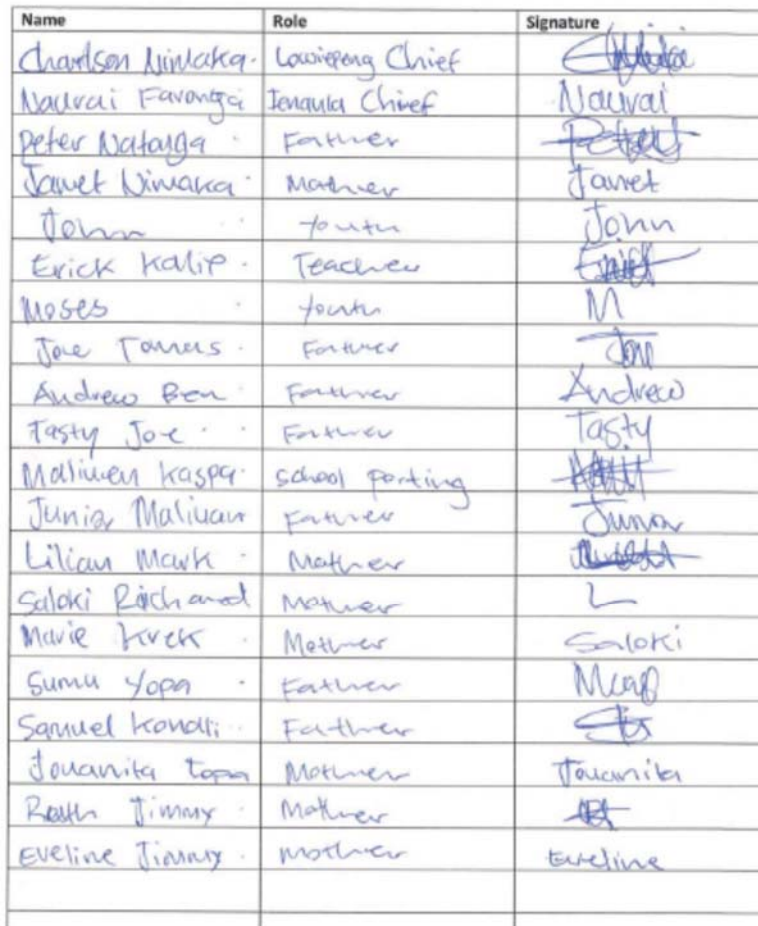 Name Role Signature
Charlson Nimaka. Lowiepeng Chief
Naurai Favonga Ienaula Chief Naurai
Peter Natonga Father
Janet Nimaka Mother Janet
John youth John
Erick Kalip Teacher
Moses youth M
Joe Tomus Father
Andrew Ben Father Andrew
Tasty Joe Father Tasty
Maliwen Kaspa School parting
Junior Maliwan Father Junior
Lilian Mark Mother
Saloki Richard Mother L
Marie Krek Mother Saloki
Sumu Yopa Father
Samuel Kondli Father
Jouanita Topa Mother Jouanita
Reth Jimmy Mother
Eveline Jimmy Mother Eveline